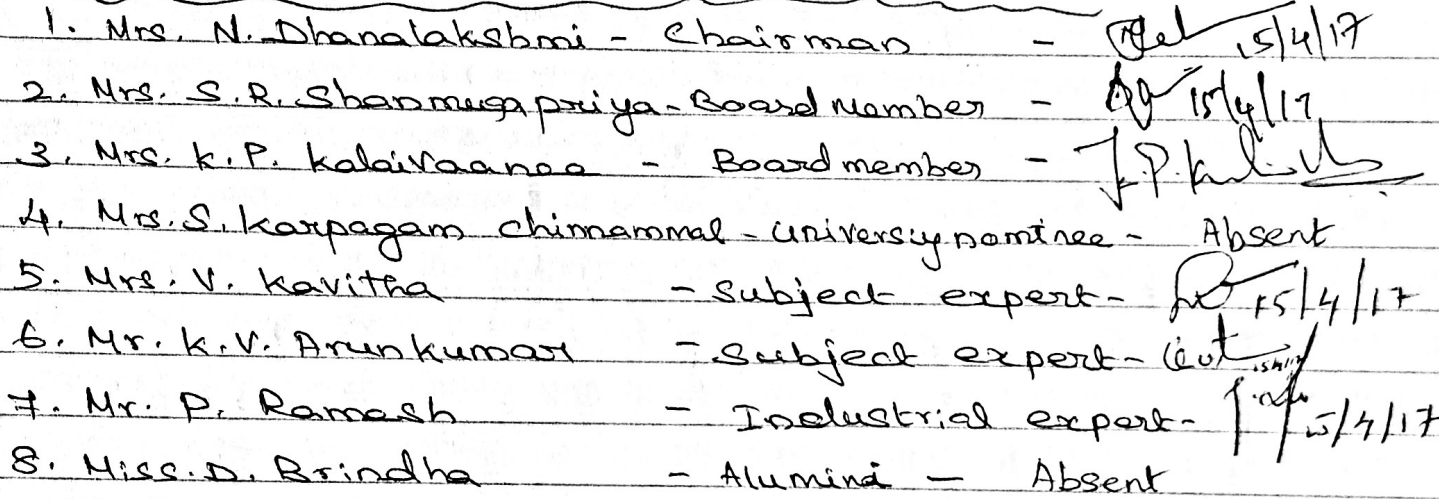 1. Mrs. N. Dhanalakshmi - Chairman - 15/4/17
2. Mrs. S.R. Shanmuga priya - Board Member - 15/4/17
3. Mrs. K.P. Kalaivaanee - Board member - K.P.
4. Mrs. S. Karpagam chinnammal - Universiy nomtnee - Absent
5. Mrs. V. Kavitha - Subject expert - 15/4/17
6. Mr. K.V. Arunkumar - Subject expert -
7. Mr. P. Ramesh - Industrial expert - 15/4/17
8. Miss. D. Brindha - Alumini - Absent